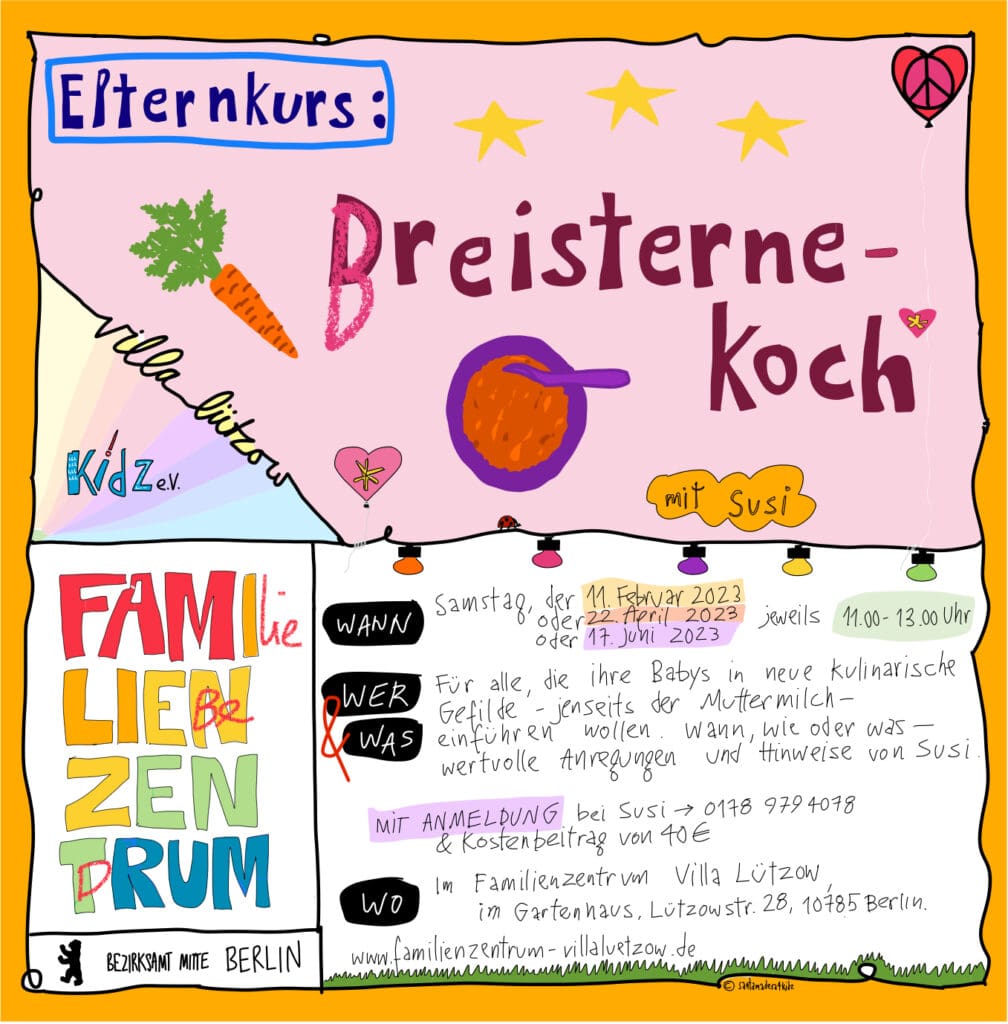 Elternkurs:
Breisterne-
Koch
villa lützow
Kidz e.V.
mit Susi
FAMIlie
LIEBeN
ZEN
TDRUM
BEZIRKSAMT MITTE BERLIN
WANN
Samstag, der 11. Februar 2023
oder 22. April 2023 jeweils 11.00-13.00 Uhr
oder 17. Juni 2023
WER
& WAS
Für alle, die ihre Babys in neue kulinarische
Gefilde - jenseits der Muttermilch-
einführen wollen. Wann, wie oder was-
wertvolle Anregungen und Hinweise von Susi.
MIT ANMELDUNG bei Susi → 0178 9794078
& Kostenbeitrag von 40€
WO
Im Familienzentrum Villa Lützow,
im Gartenhaus, Lützowstr. 28, 10785 Berlin.
www.familienzentrum-villaluetzow.de